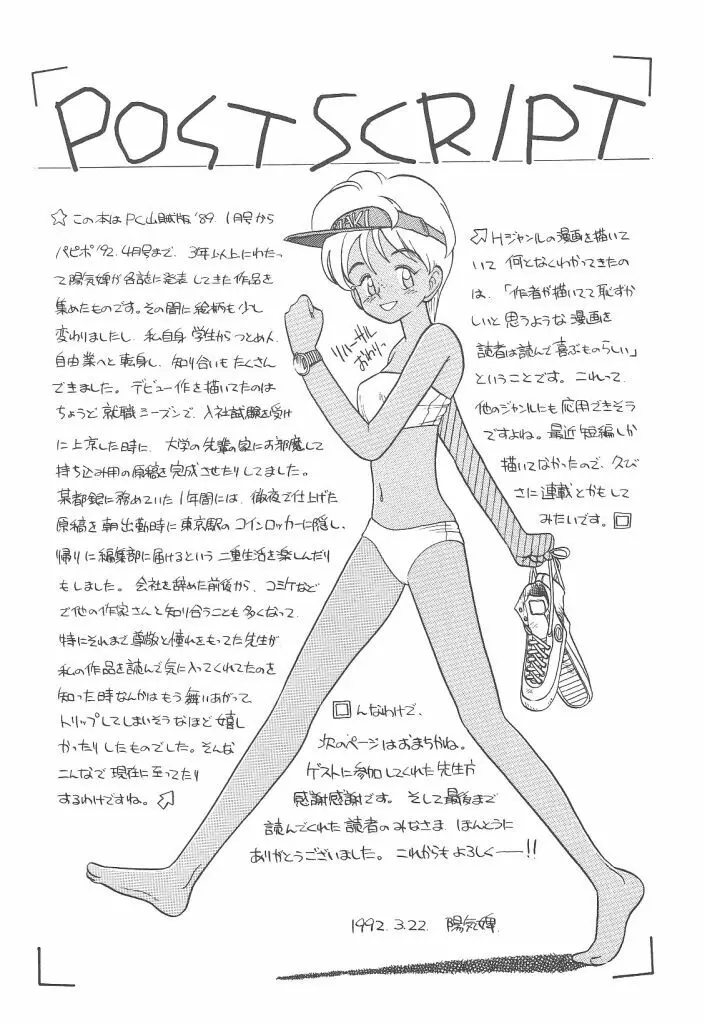 POSTSCRIPT
☆この本はPC山賊版'89.1月号から
パピポ'92.4月号まで、3年以上にわたっ
て陽気婢が各誌に発表してきた作品を
集めたものです。その間に絵柄も少し
変わりましたし、私自身学生からつとめ人、
自由業へと転身し、知り合いもたくさん
できました。デビュー作を描いてたのは
ちょうど就職シーズンで、入社試験を受け
に上京した時に、大学の先輩の家にお邪魔して
持ち込み用の原稿を完成させたりしてました。
某都銀に務めていた1年間には、徹夜で仕上げた
原稿を朝出勤時に東京駅のコインロッカーに隠し、
帰りに編集部に届けるという二重生活を楽しんだり
もしました。会社を辞めた前後から、コミケなど
で他の作家さんと知り合うことも多くなって、
特にそれまで尊敬と憧れをもってた先生が
私の作品を読んで気に入ってくれてたのを
知った時なんかはもう舞いあがって
トリップしてしまいそうなほど嬉し
かったりしたものでした。そんな
こんなで現在に至ってたり
するわけですね。
TAKI
リハーサル
おわりっ
Hジャンルの漫画を描いて
いて何となくわかってきたの
は、「作者が描いてて恥ずか
しいと思うような漫画を
読者は読んで喜ぶものらしい」
ということです。これって、
他のジャンルにも応用できそう
ですよね。最近短編しか
描いてなかったので、久び
さに連載とかもして
みたいです。□
□んなわけで、
次のページはおまちかね。
ゲストに参加してくれた先生方
感謝感謝です。そして最後まで
読んでくれた読者のみなさま、ほんとうに
ありがとうございました。これからもよろしく――!!
1992.3.22. 陽気婢